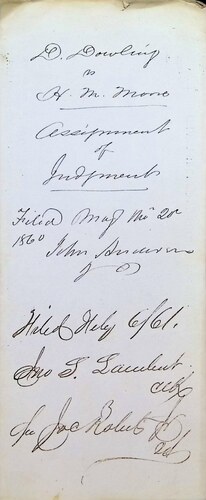 D. Dowling
vs
H. M. Moore
Assignment
of
Judgment
Filed May the 20
1860
John Anderson
Filed Feby 6/61.
Jno S. Lambert
clk
Joe Roberts